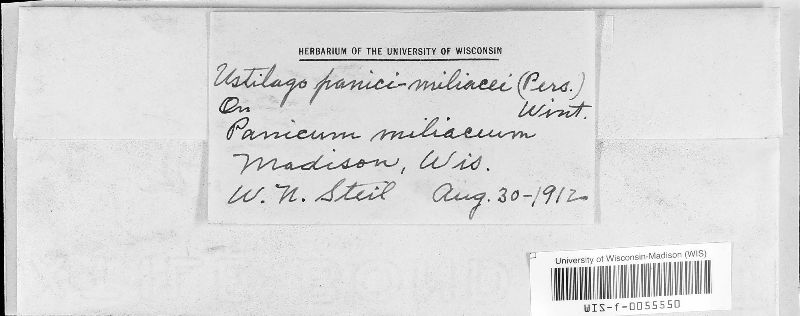 HERBARIUM OF THE UNIVERSITY OF WISCONSIN
Ustilago panici-miliacei (Pers.)
Wint.
On
Panicum miliaceum
Madison, Wis.
W. N. Steil Aug. 30-1912
University of Wisconsin-Madison (WIS)
WIS-f-0055550